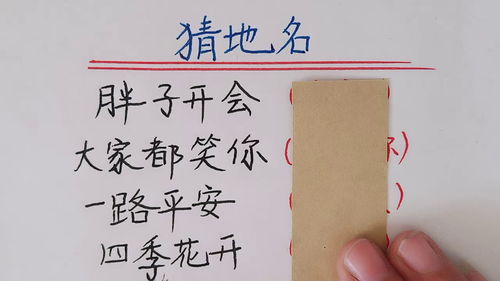 猜地名
胖子开会 (
大家都笑你 ( )
一路平安 ( )
四季花开 (